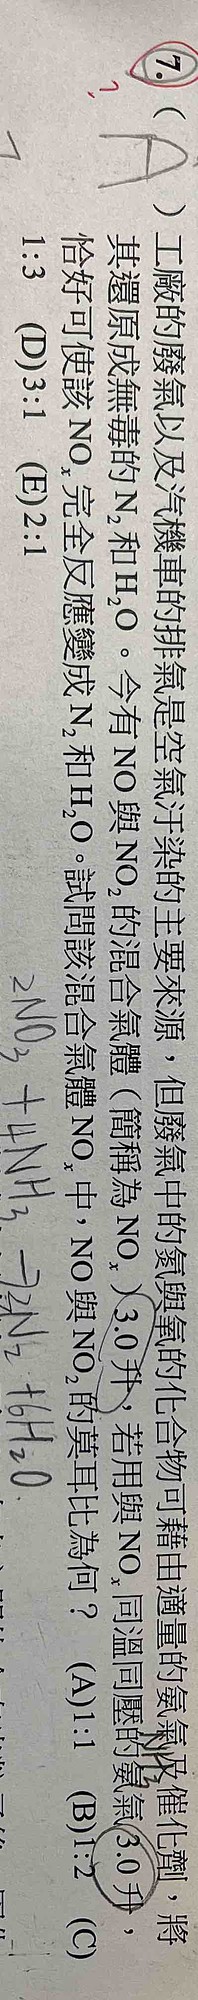 7. ( A ) 工廠的廢氣以及汽機車的排氣是空氣汙染的主要來源，但廢氣中的氮與氧的化合物可藉由適量的氨氣及催化劑，將
其還原成無毒的 N₂ 和 H₂O。今有 NO 與 NO₂ 的混合氣體（簡稱為 NOₓ）3.0 升，若用與 NOₓ 同溫同壓的氨氣 3.0 升，
NH₃
恰好可使該 NOₓ 完全反應變成 N₂ 和 H₂O。試問該混合氣體 NOₓ 中，NO 與 NO₂ 的莫耳比為何？ (A)1:1 (B)1:2 (C)
1:3 (D)3:1 (E)2:1